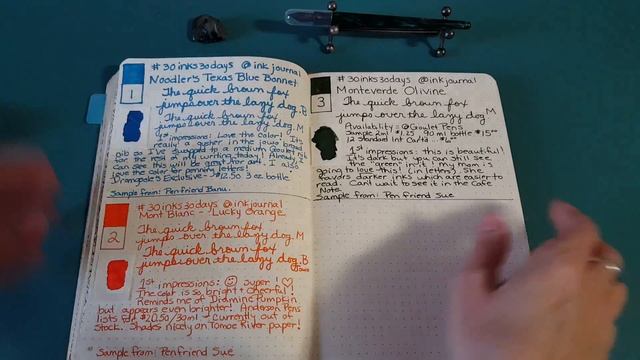 #30inks30days @inkjournal
Noodler's Texas Blue Bonnet
The quick brown fox
jumps over the lazy dog. B
The quick brown fox
jumps over the lazy dog. M
1
1st impressions: Love the color! It's
really a gusher in the jowo broad
nib so I've swapped to a medium Goulet nib
for the rest of my writing today. Already
can see this will be my fav. I also
love the color for penning letters!
Exclusive - $12.50 3 oz bottle
Sample from: Penfriend Banu.
#30inks30days @inkjournal
Mont Blanc - Lucky Orange
The quick brown fox
jumps over the lazy dog. M
The quick brown fox
jumps over the lazy dog. B
2
1st impressions: super!
The color is so bright & cheerful!
Reminds me of Diamine Pumpkin
but appears even brighter! Anderson Pens
lists for $20.50/30ml - Currently out of
stock. Shades nicely on Tomoe River paper!
Sample from: Penfriend Sue
#30inks30days @inkjournal
Monteverde Olivine
The quick brown fox
jumps over the lazy dog. M
3
Availability: @Goulet Pens
Sample 2ml $1.25 90 ml bottle $15.00
12 Standard Int Carts
1st impressions: this is beautiful!
It's dark but you can still see
the "green" in it! My mom is
going to love this! (in letters). She
favors darker inks which are easier to
read. Can't wait to see it in the Cafe
Note.
Sample from: Pen friend Sue